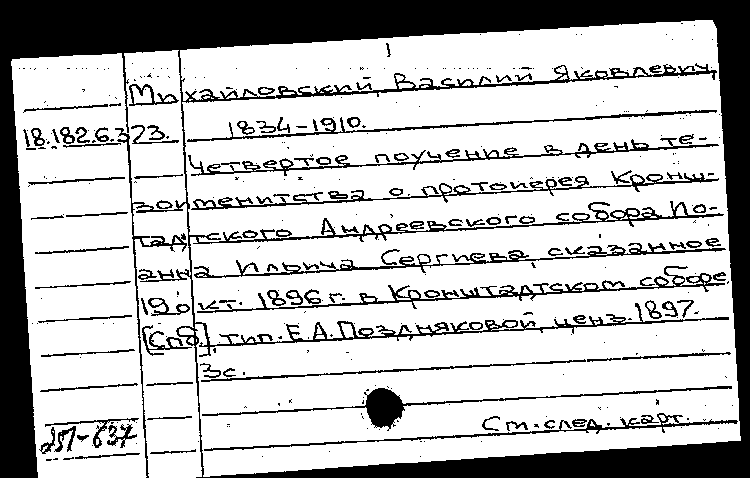 1
Михайловский, Василий Яковлевич,
18.182.6.373. 1834-1910.
Четвертое поучение в день те-
зоименитства о. протоиерея Кронш-
тадтского Андреевского собора Ио-
анна Ильича Сергиева, сказанное
19 окт. 1896 г. в Кронштадтском соборе
[Спб], тип. Е.А. Поздняковой, ценз. 1897.
3с.
251-637
См. след. карт.